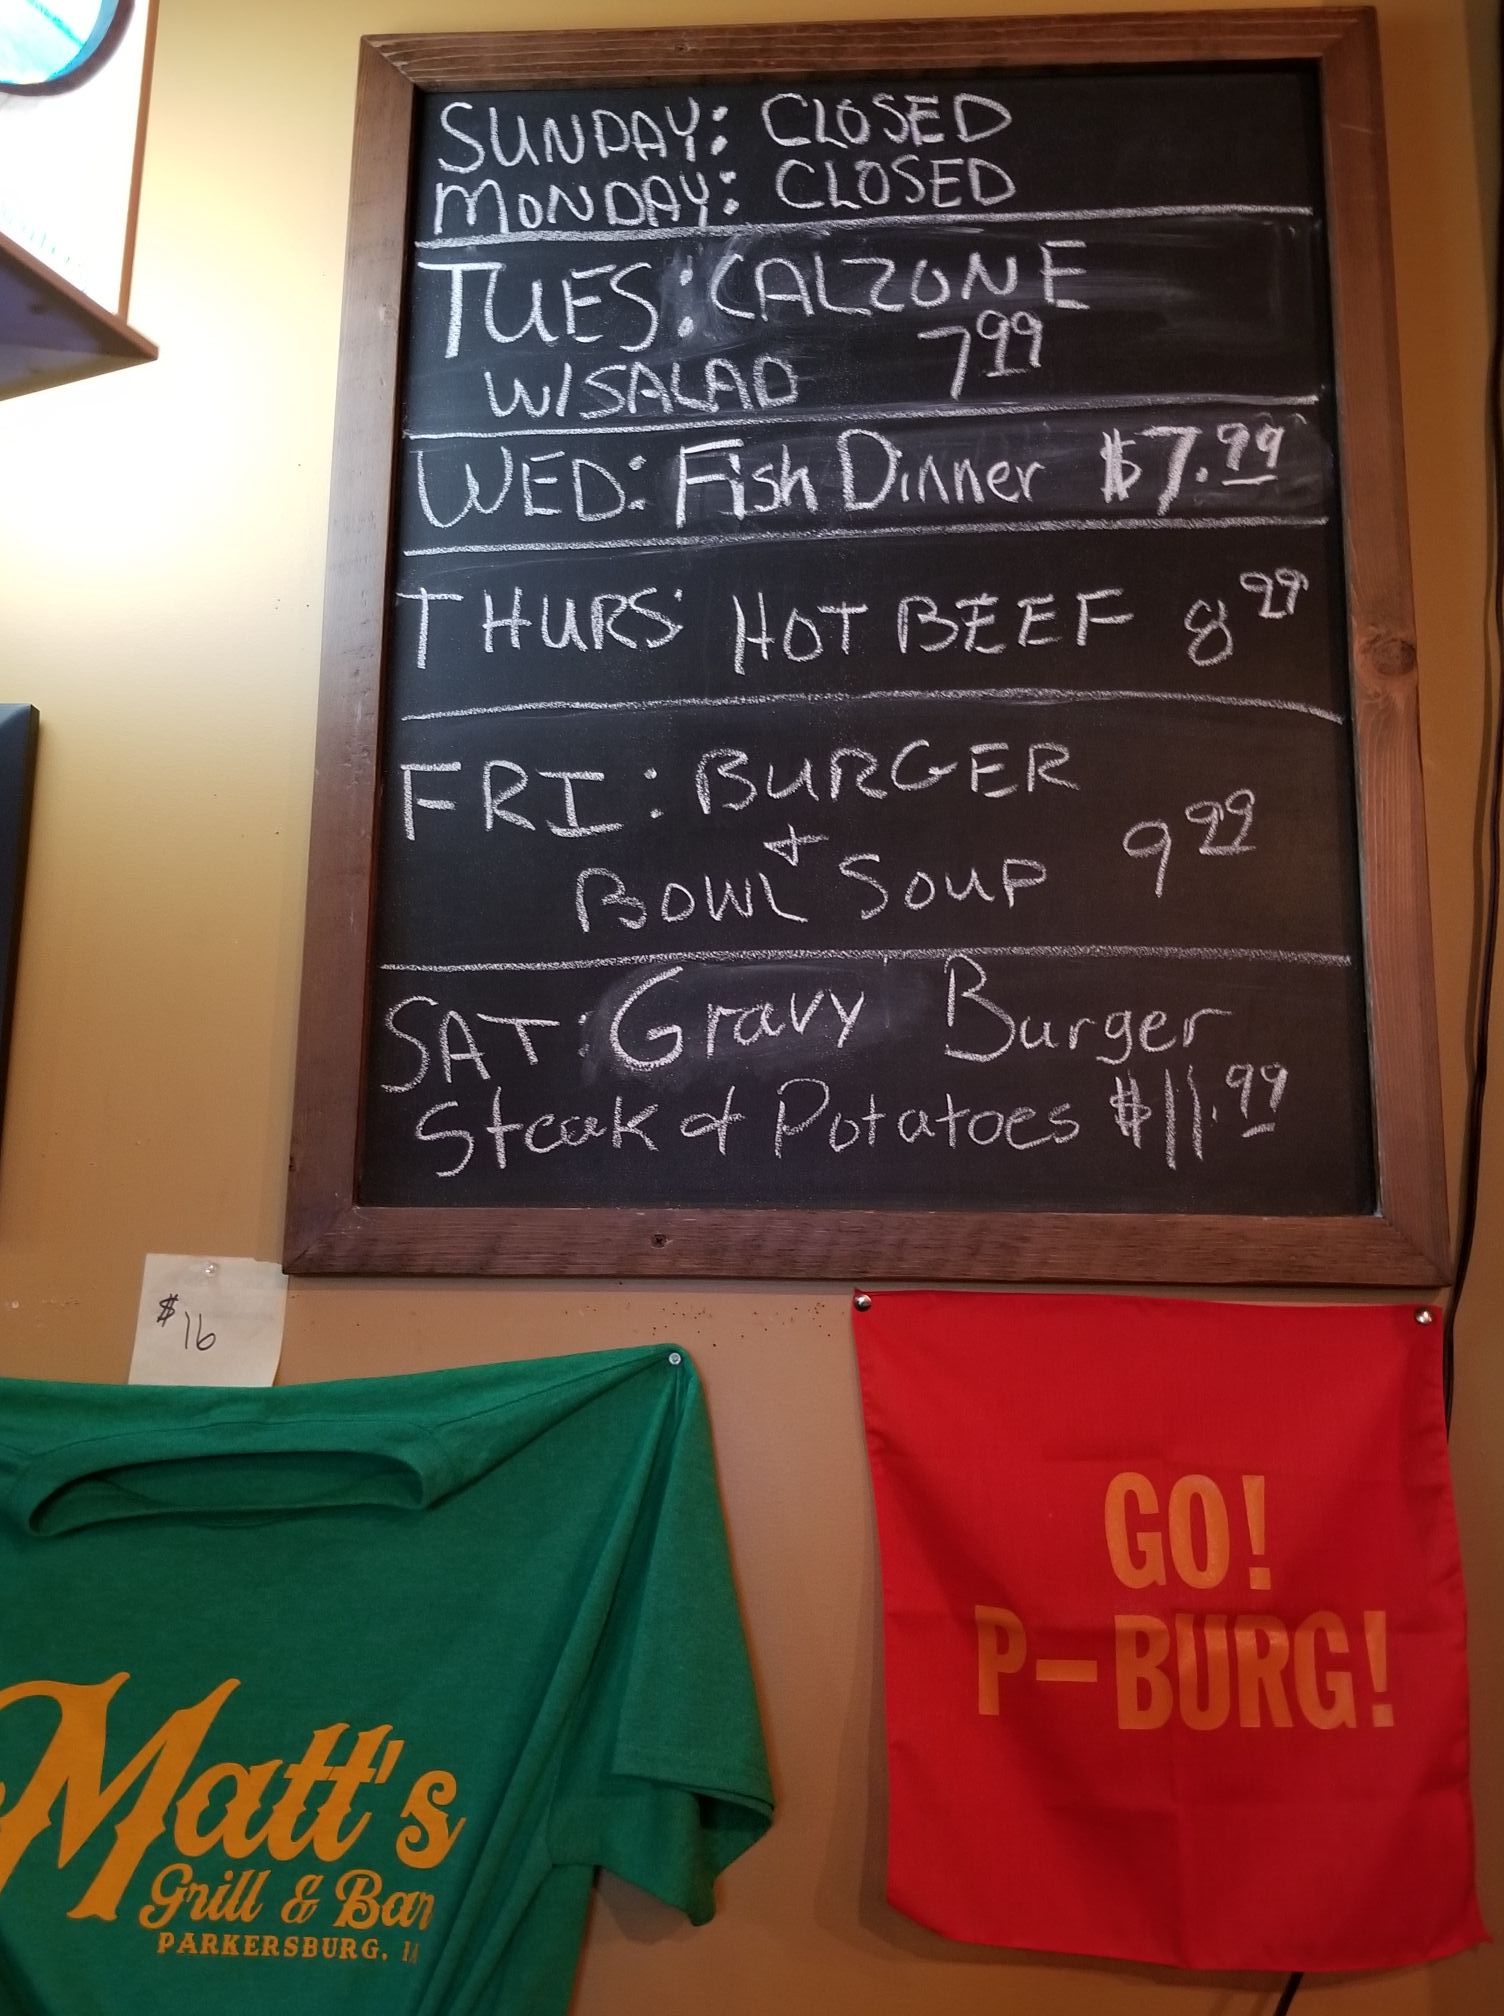 SUNDAY: CLOSED
MONDAY: CLOSED
TUES: CALZONE
W/SALAD 7.99
WED: Fish Dinner $7.99
THURS: HOT BEEF 8 99
FRI: BURGER
+
BOWL SOUP 9 99
SAT: Gravy Burger
Steak & Potatoes $11.99
$16
GO!
P-BURG!
Matt's
Grill & Bar
PARKERSBURG, IA